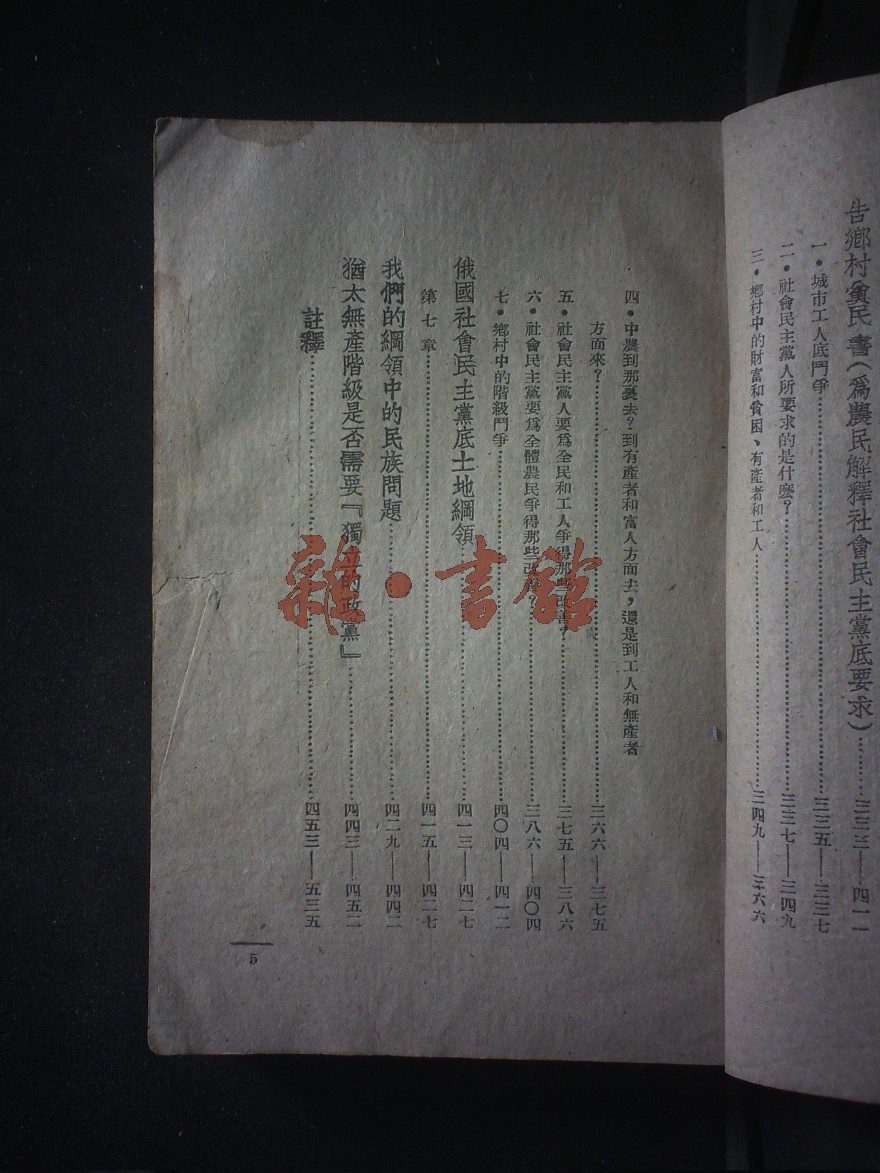 告鄉村貧民書(爲農民解釋社會民主黨底要求)………三三三——四一一
一•城市工人底鬥爭………三三五——三三七
二•社會民主黨人所要求的是什麼?………三三七——三四九
三•鄉村中的財富和貧困、有產者和工人………三四九——三六六
四•中農到那裏去?到有產者和富人方面去,還是到工人和無產者
方面來?………三六六——三七五
五•社會民主黨人要爲全民和工人爭得那些改善?………三七五——三八六
六•社會民主黨要爲全體農民爭得那些改善?………三八六——四〇四
七•鄉村中的階級鬥爭………四〇四——四一二
俄國社會民主黨底土地綱領………四一三——四二七
第七章………四一五——四二七
我們的綱領中的民族問題………四二九——四四二
猶太無產階級是否需要『獨立的政黨』………四四三——四五二
註釋………四五三——五三五
5
雜•書館